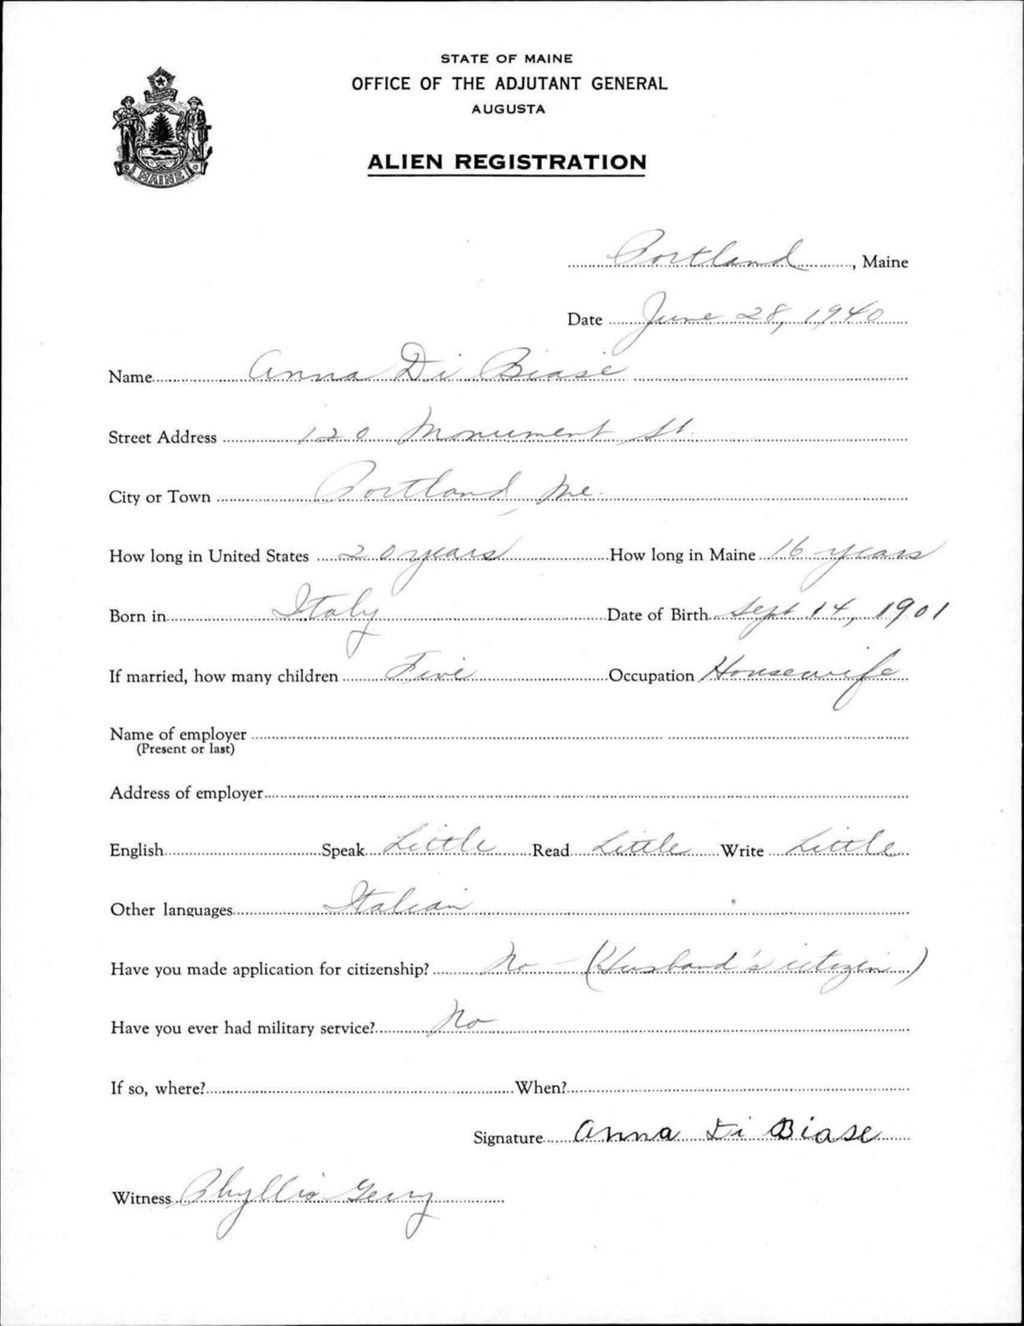 STATE OF MAINE
OFFICE OF THE ADJUTANT GENERAL
AUGUSTA
ALIEN REGISTRATION
MAINE
Portland, Maine
Date June 28, 1940
Name Anna Di Biase
Street Address 120 Monument St.
City or Town Portland, Me.
How long in United States 20 years How long in Maine 16 years
Born in Italy Date of Birth Sept 14, 1901
If married, how many children Five Occupation Housewife
Name of employer
(Present or last)
Address of employer
English Speak Little Read Little Write Little
Other languages Italian
Have you made application for citizenship? No - (Husband's citizen)
Have you ever had military service? No
If so, where? When?
Signature Anna Di Biase
Witness Phyllis Gerry